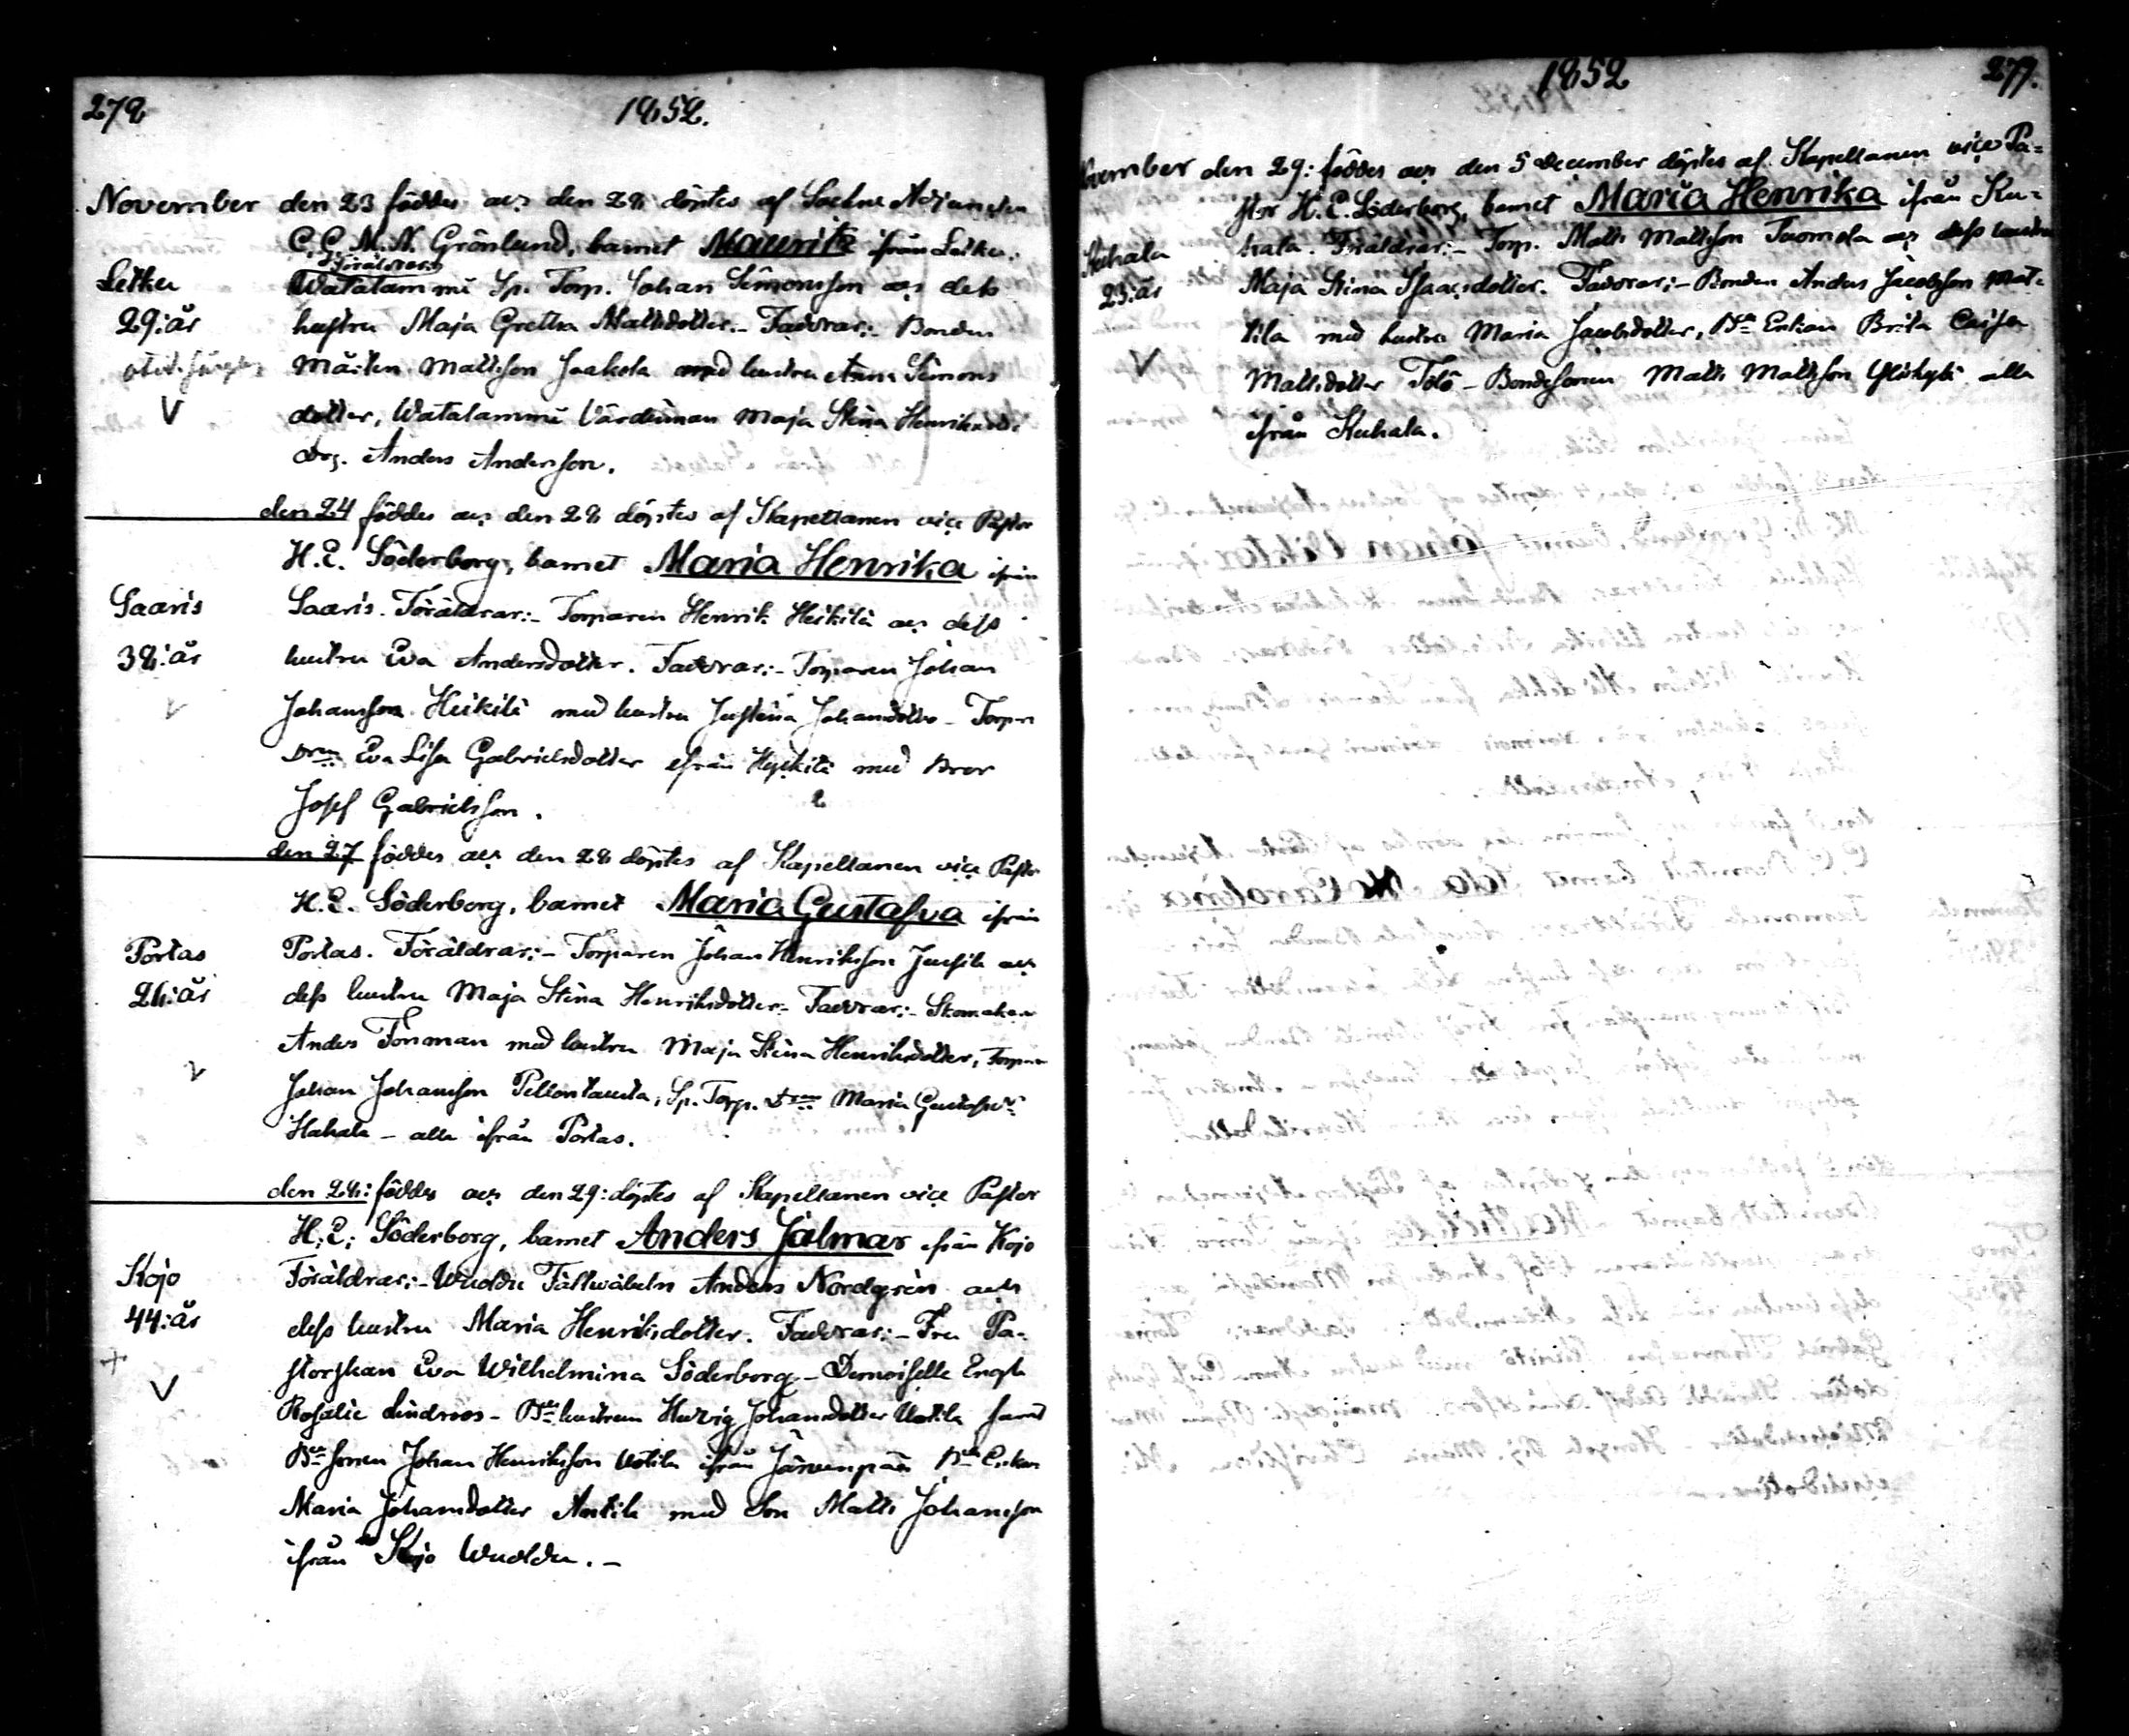 278
1852.
November den 23 föddes och den 28 döptes af Sockne Adjuncten
C. C. M. N. Grönlund, barnet Mauritz ifrån Letku.
Föräldrar:
Letku Watalammi Sp. Torp. Johan Simonsson och dess
29:år hustru Maja Gretha Mattsdotter. Faddrar:- Bonden
Mårten Mattsson Jaakola med hustru Anna Simons
V dotter, Watalammi Värdinnan Maja Stina Henriksdr
Drg. Anders Andersson.
den 24 föddes och den 28 döptes af Kapellanen vice Pastor
H. E. Söderborg, barnet Maria Henrika ifrån
Saaris Saaris. Föräldrar:- Torparen Henrik Heikilä och dess
38:år hustru Eva Andersdotter. Faddrar:- Torparen Johan
Johansson Heikilä med hustru Justina Johansdotter - Torpa
Eva Lisa Gabrielsdotter ifrån med Bror
Josef Gabrielsson.
den 27 föddes och den 28 döptes af Kapellanen vice Pastor
H. E. Söderborg, barnet Maria Gustafva ifrån
Portas Portas. Föräldrar:- Torparen Johan Henriksson Jussila och
26:år dess hustru Maja Stina Henriksdotter- Faddrar:- Skomakaren
Anders Forsman med hustru Maja Stina Henriksdotter, Torparen
Johan Johansson Pellontausta, Sp. Torp. Maria Gustafsdr
Hakala - alla ifrån Portas.
den 28: föddes och den 29: döptes af Kapellanen vice Pastor
H. E. Söderborg, barnet Anders Jalmar ifrån Kojo
Kojo Föräldrar:- Wuoldu Fältwäbeln Anders Nordgren och
44:år dess hustru Maria Henriksdotter. Faddrar:- Fru Pa-
storskan Eva Wilhelmina Söderborg - Demoiselle Engla
V Rosalie Lindroos - Bde hustrun Hedvig Johansdotter Uotila samt
Bde sonen Johan Henriksson Uotila ifrån Järvenpää Bde Enkan
Maria Johansdotter Anttila med Son Matts Johansson
ifrån Kojo Wuoldu. -
1852
277.
November den 29: föddes och den 5 December döptes af Kapellanen vice Pa-
stor H. E. Söderborg, barnet Maria Henrika ifrån Ku-
Kuhala hala. Föräldrar:- Torp. Matts Mattsson Tuomola och dess hustru
23:år Maja Stina Isaacsdotter. Faddrar:- Bonden Anders Jacobsson Mat-
tila med hustru Maria Jacobsdotter, Bde Enkan Brita Caisa
V Mattsdotter Tolö - Bondesonen Matts Mattsson Ylikylä alla
ifrån Kuhala.